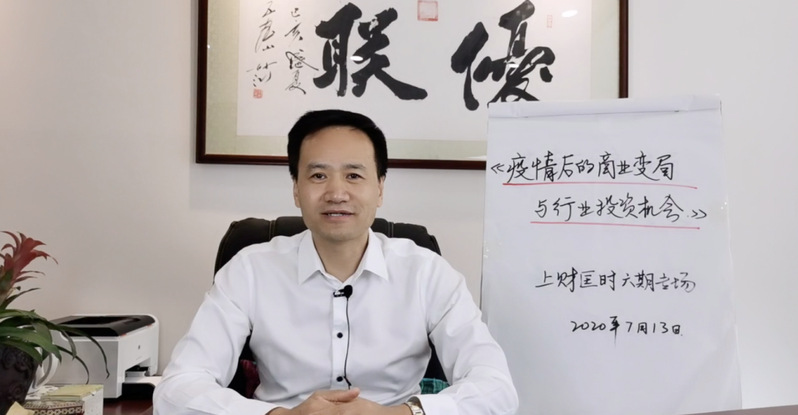 優联
己亥盛夏
《疫情后的商业变局
与行业投资机会》
上财匡时六期专场
2020年7月13日